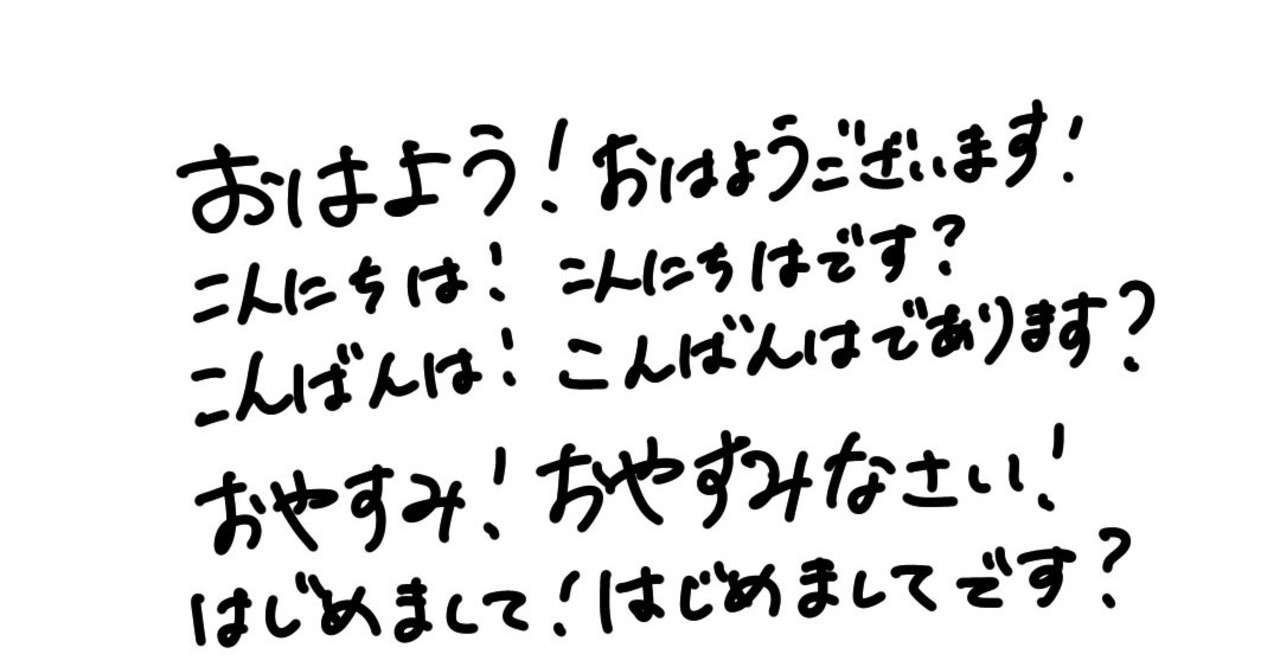 おはよう！おはようございます！
こんにちは！こんにちはです？
こんばんは！こんばんはであります？
おやすみ！おやすみなさい！
はじめまして！はじめましてです？